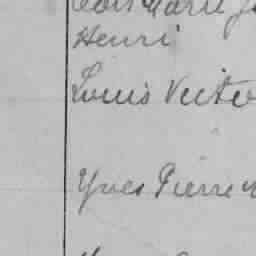 Marie
Henri
Louis Victo
Yves Pierre